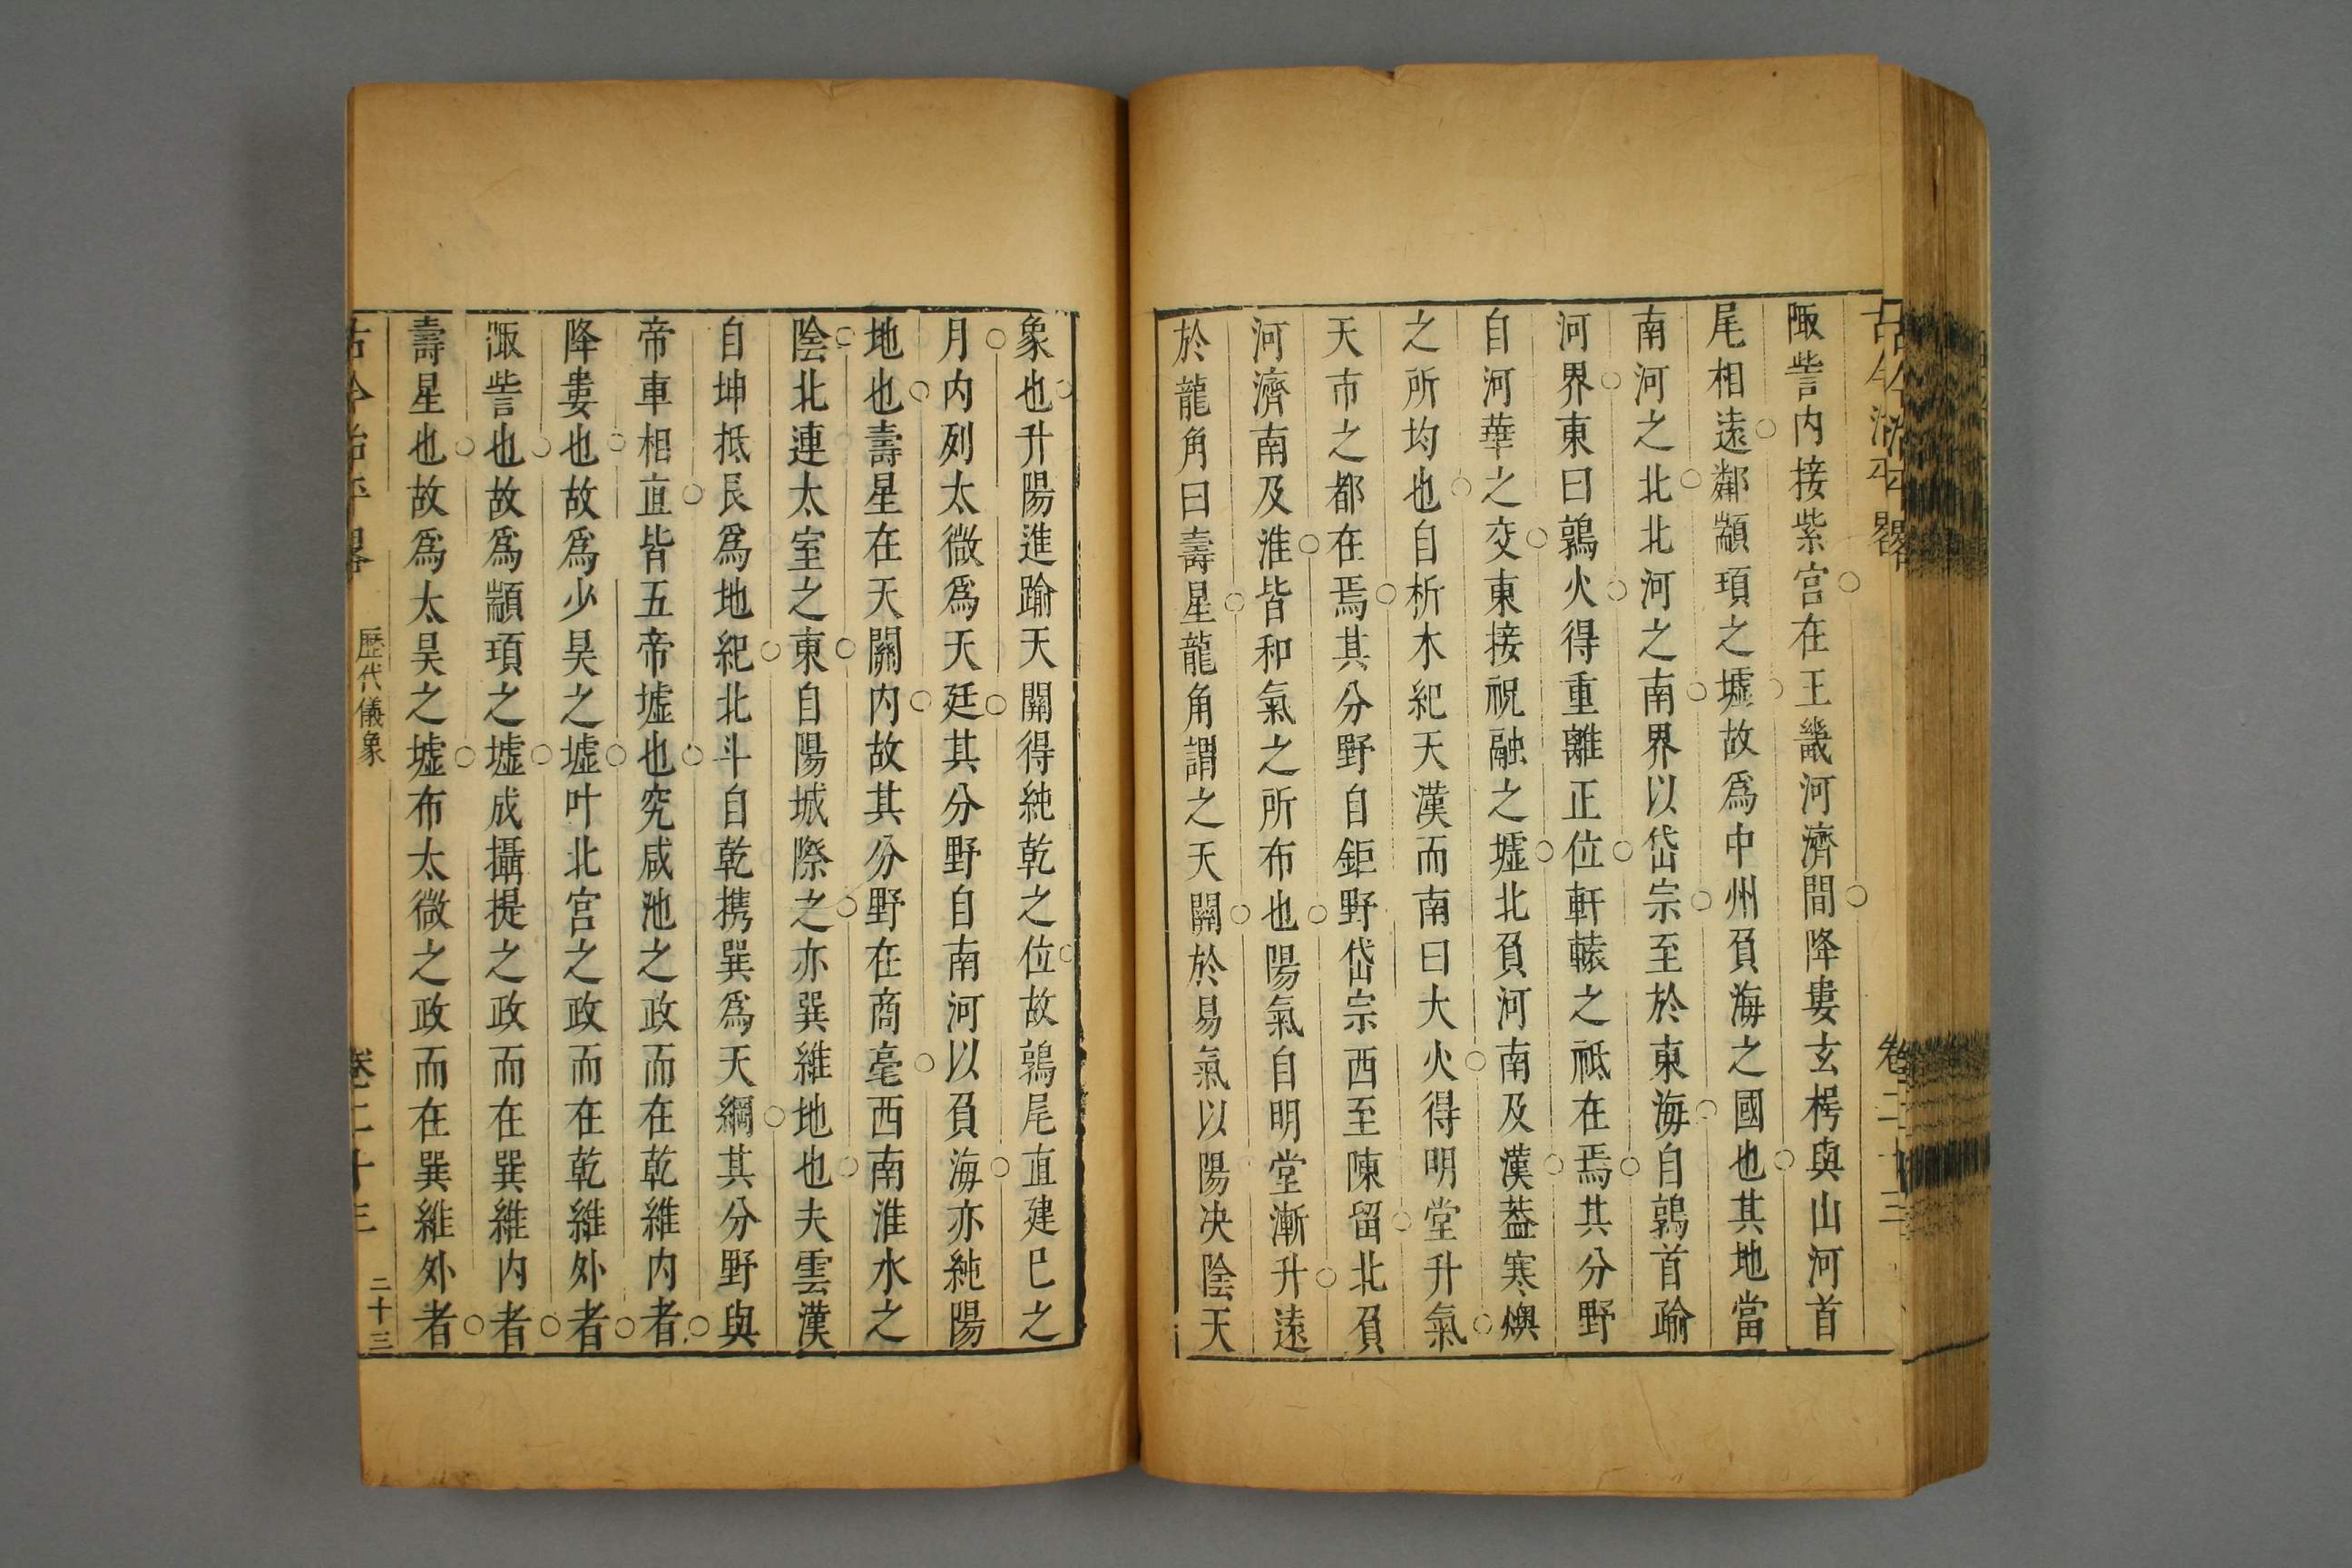 古今治平畧 卷二十三
陬訾内接紫宫在王畿河濟間降婁玄枵與山河首
尾相遠鄰顓頊之墟故爲中州負海之國也其地當
南河之北北河之南界以岱宗至於東海自鶉首踰
河界東曰鶉火得重離正位軒轅之祗在焉其分野
自河華之交東接祝融之墟北負河南及漢葢寒燠
之所均也自析木紀天漢而南曰大火得明堂升氣
天市之都在焉其分野自鉅野岱宗西至陳留北負
河濟南及淮皆和氣之所布也陽氣自明堂漸升遠
於龍角曰壽星龍角謂之天關於易氣以陽决陰夬
象也升陽進踰天關得純乾之位故鶉尾直建巳之
月内列太微爲天廷其分野自南河以負海亦純陽
地也壽星在天關内故其分野在商亳西南淮水之
陰北連太室之東自陽城際之亦巽維地也夫雲漢
自坤抵艮爲地紀北斗自乾携巽爲天綱其分野與
帝車相直皆五帝墟也究咸池之政而在乾維内者
降婁也故爲少昊之墟叶北宫之政而在乾維外者
陬訾也故爲顓頊之墟成攝提之政而在巽維内者
壽星也故爲太昊之墟布太微之政而在巽維外者
古今治平畧 歷代儀象 卷二十三 二十三